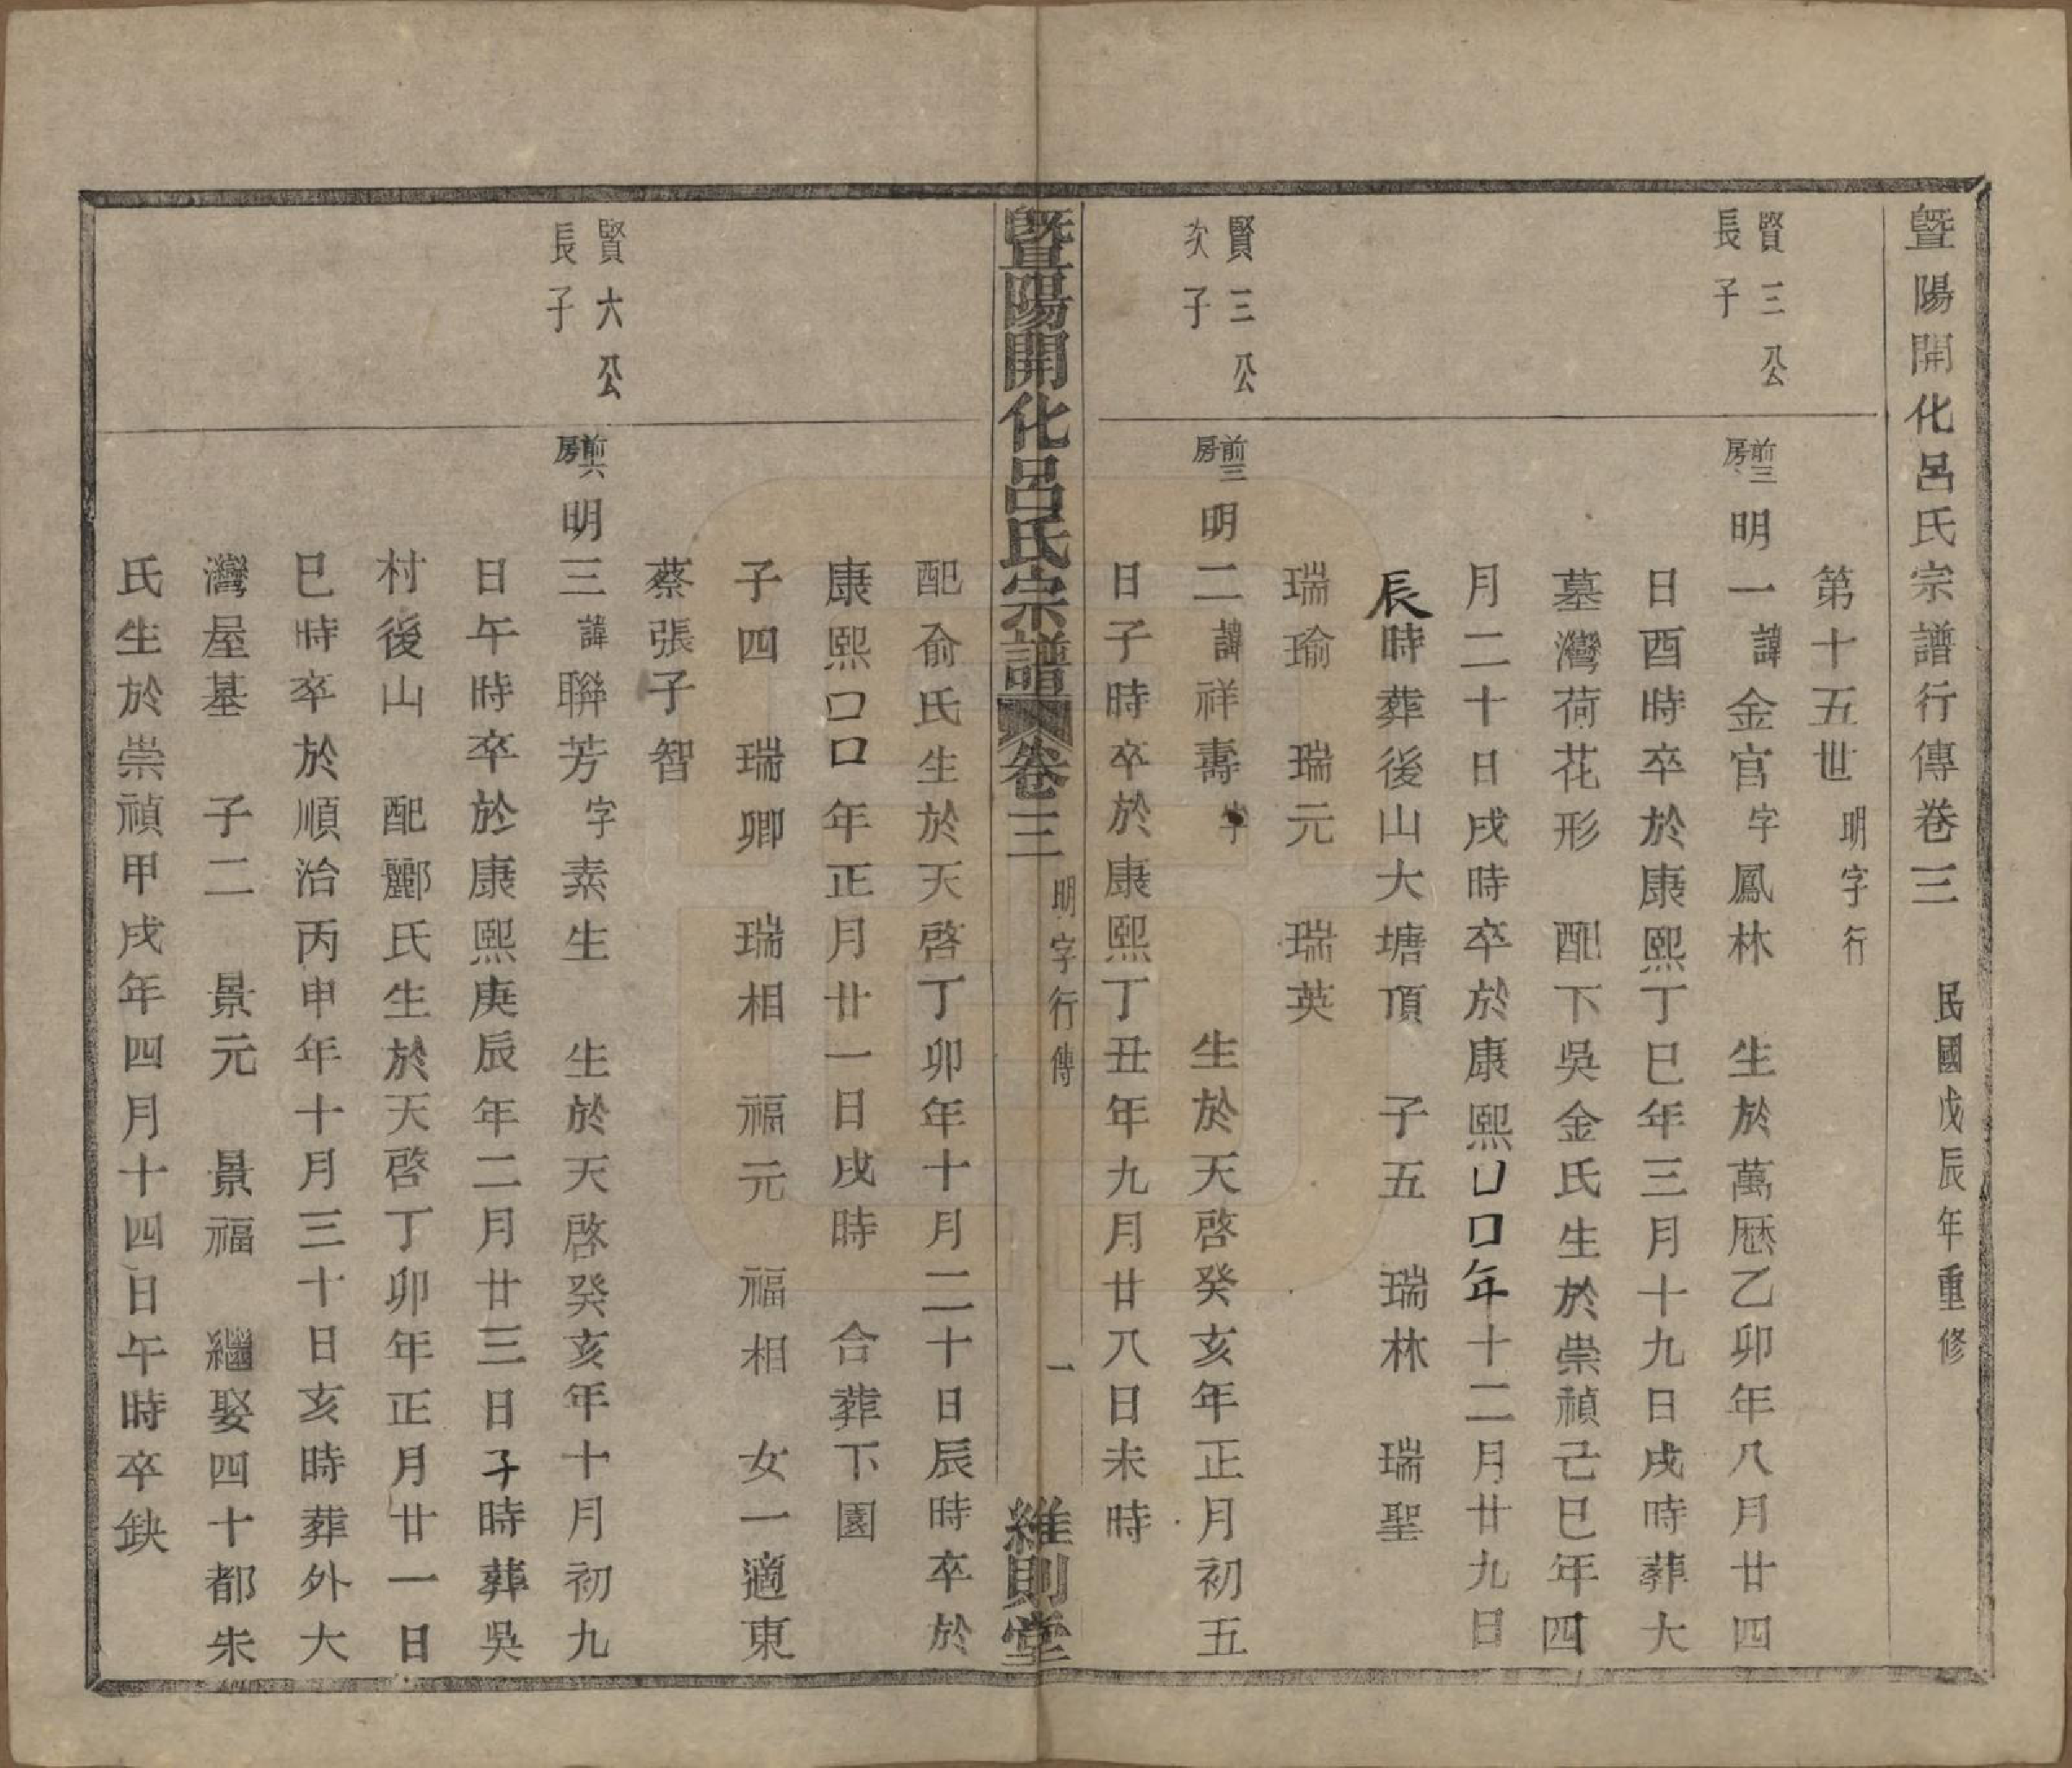 暨陽開化呂氏宗譜行傳卷三　民國戊辰年重修
第十五世　明字行
賢三公
長子
前三房　明一　諱金官　字鳳林　生於萬厯乙卯年八月廿四
日酉時卒於康熙丁巳年三月十九日戌時葬大
墓灣荷花形　配下吳金氏生於崇禎己巳年四
月二十日戌時卒於康熙口口年十二月廿九日
辰時葬後山大塘頂　子五　瑞林　瑞聖
瑞瑜　瑞元　瑞英
賢三公
次子
前三房　明二　諱祥壽　字　生於天啓癸亥年正月初五
日子時卒於康熙丁丑年九月廿八日未時
暨陽開化呂氏宗譜　卷三　明字行傳　一　維則堂
配俞氏生於天啓丁卯年十月二十日辰時卒於
康熙口口年正月廿一日戌時　合葬下園
子四　瑞卿　瑞相　福元　福相　女一適東
蔡張子智
賢大公
長子
前六房　明三　諱聯芳　字素生　生於天啓癸亥年十月初九
日午時卒於康熙庚辰年二月廿三日子時葬吳
村後山　配酈氏生於天啓丁卯年正月廿一日
巳時卒於順治丙申年十月三十日亥時葬外大
灣屋基　子二　景元　景福　繼娶四十都朱
氏生於崇禎甲戌年四月十四日午時卒缺